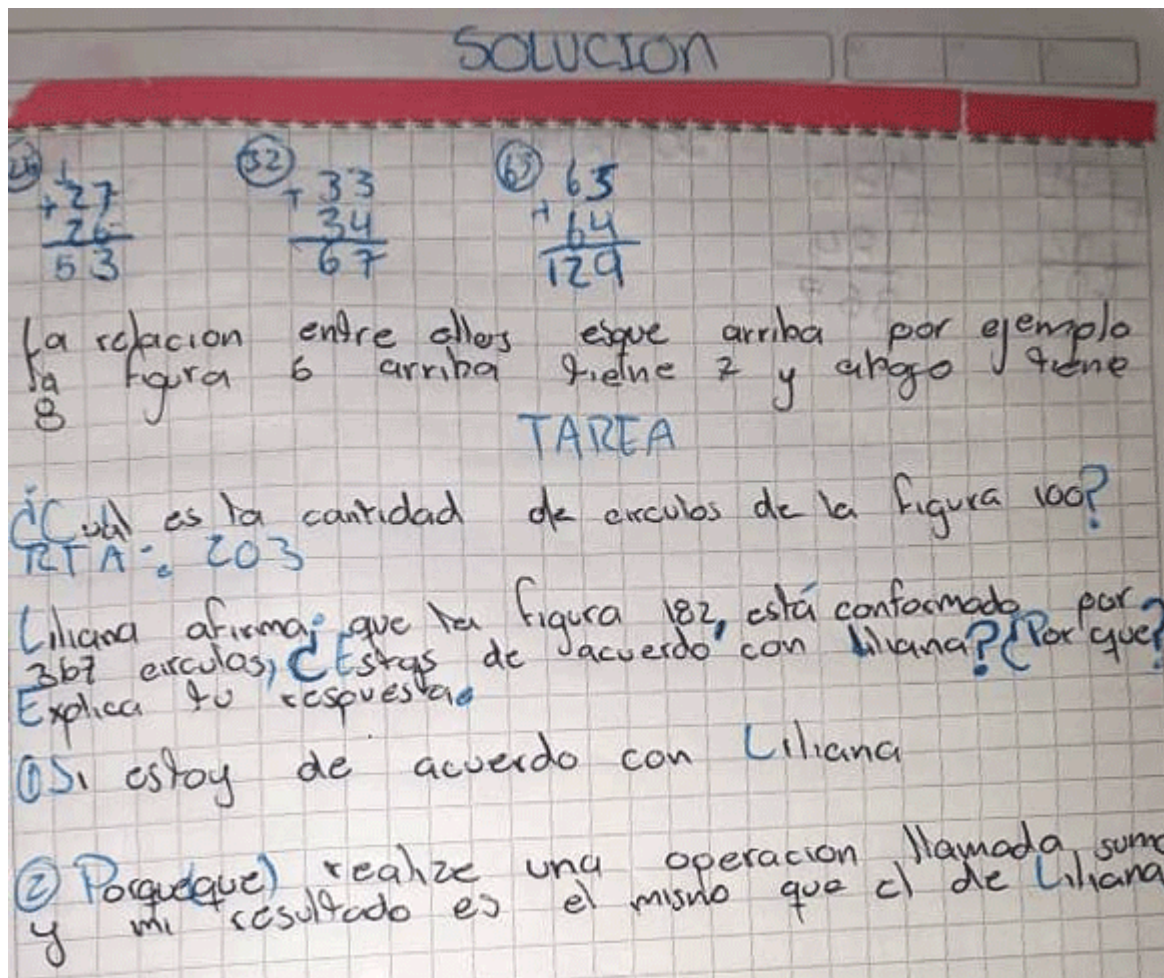 SOLUCION
27 32 33 63 65
+ 26 + 34 + 64
53 67 129
La relacion entre ellos esque arriba por ejemplo
la figura 6 arriba tielne 7 y abago tiene
8
TAREA
¿Cual es la cantidad de circulos de la figura 100?
RTA: 203
Liliana afirma; que la figura 182, está conformado por
367 circulos, ¿Estas de acuerdo con Liliana? ¿Por que?
Explica tu respuesta.
① Si estoy de acuerdo con Liliana
② Porque(que) realize una operacion llamada suma
y mi resultado es el mismo que el de Liliana